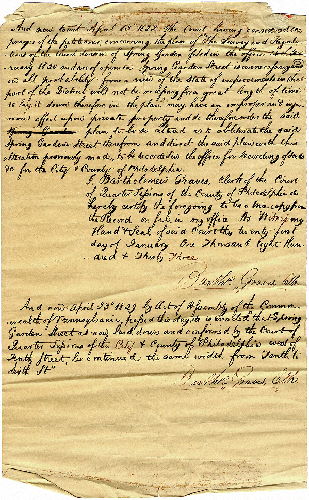 And now to wit April 10 1822 The Court having considered the
prayer of the petitions concerning the plan of The Survey and Regula
tions of the lower district of Spring Garden filed in the
1820 and are of opinion Spring Garden Street is
in all probability from a view of the State of improvements in that
part of the District will not be
laying it down therefore in the plan may have an improper and inju
rious effect upon private property and do therefore order the said
Spring Garden plan to be altered so as to obliterate the said
Spring Garden Street therefrom and direct the said plan with this
alteration previously made, to be recorded in the office for recording of Deeds
&c for the City & County of Philadelphia.
I, Bartholomew Graves Clerk of the Court
of Quarter Sessions of the County of Philadelphia do
hereby certify the foregoing to be a true copy from
the Record on file in my office As Witness my
Hand & Seal of said Court the twenty first
day of January One Thousand Eight Hun
dred & Thirty Three
Barthw Graves Clk
And now April 23d 1829 by Act of Assembly of the Common
wealth of Pennsylvania, passed the day it is enacted that Spring
Garden Street as now laid down and confirmed by the Court of
Quarter Sessions of the City & County of Philadelphia west of
Tenth Street, be continued the same width from Tenth to
Sixth St"
Barthw Graves Clk